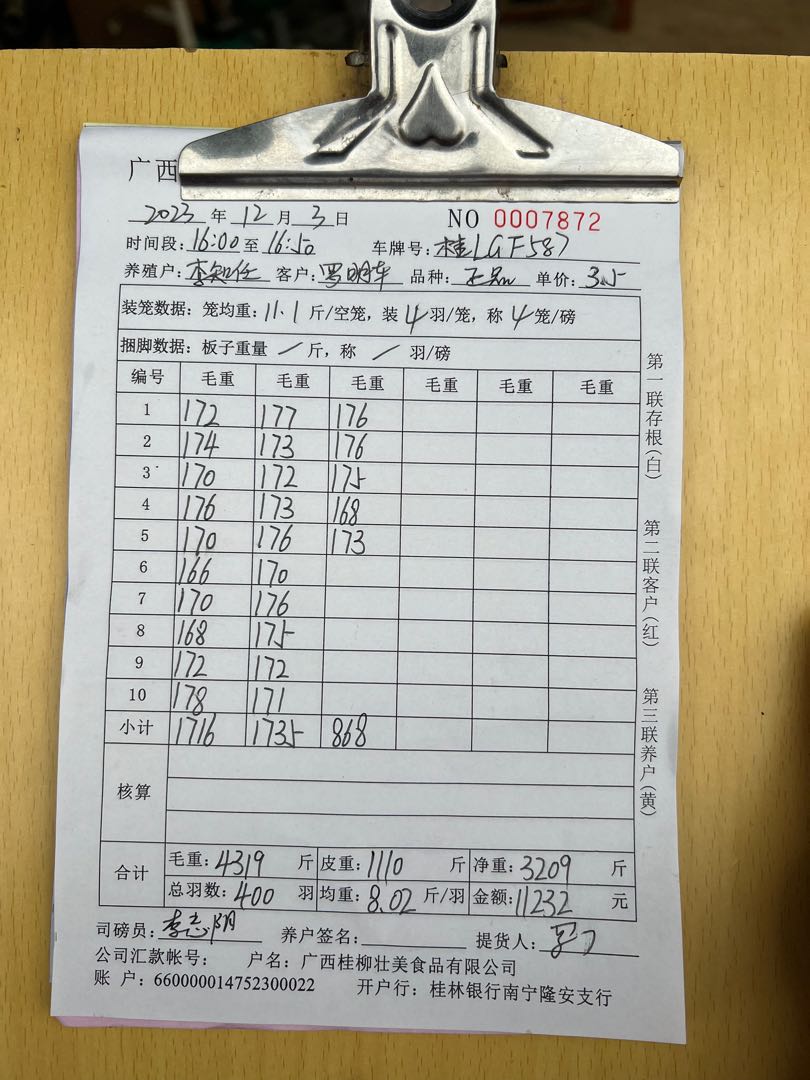 广西
2023年12月3日 NO 0007872
时间段:16:00至16:50 车牌号:桂LGF587
养殖户:李知任 客户:罗明车 品种: 单价:3.5
装笼数据:笼均重:11.1斤/空笼,装4羽/笼,称4笼/磅
捆脚数据:板子重量/斤,称/羽/磅
编号 毛重 毛重 毛重 毛重 毛重 毛重
1 172 177 176
2 174 173 176
3 170 172 175
4 176 173 168
5 170 176 173
6 166 170
7 170 176
8 168 175
9 172 172
10 178 171
小计 1716 1735 868
核算
合计 毛重:4319斤 皮重:1110斤 净重:3209斤
总羽数:400羽 均重:8.02斤/羽 金额:11232元
司磅员:李志阴 养户签名: 提货人:
公司汇款帐号: 户名:广西桂柳壮美食品有限公司
账 户:660000014752300022 开户行:桂林银行南宁隆安支行
第一联存根(白)
第二联客户(红)
第三联养户(黄)